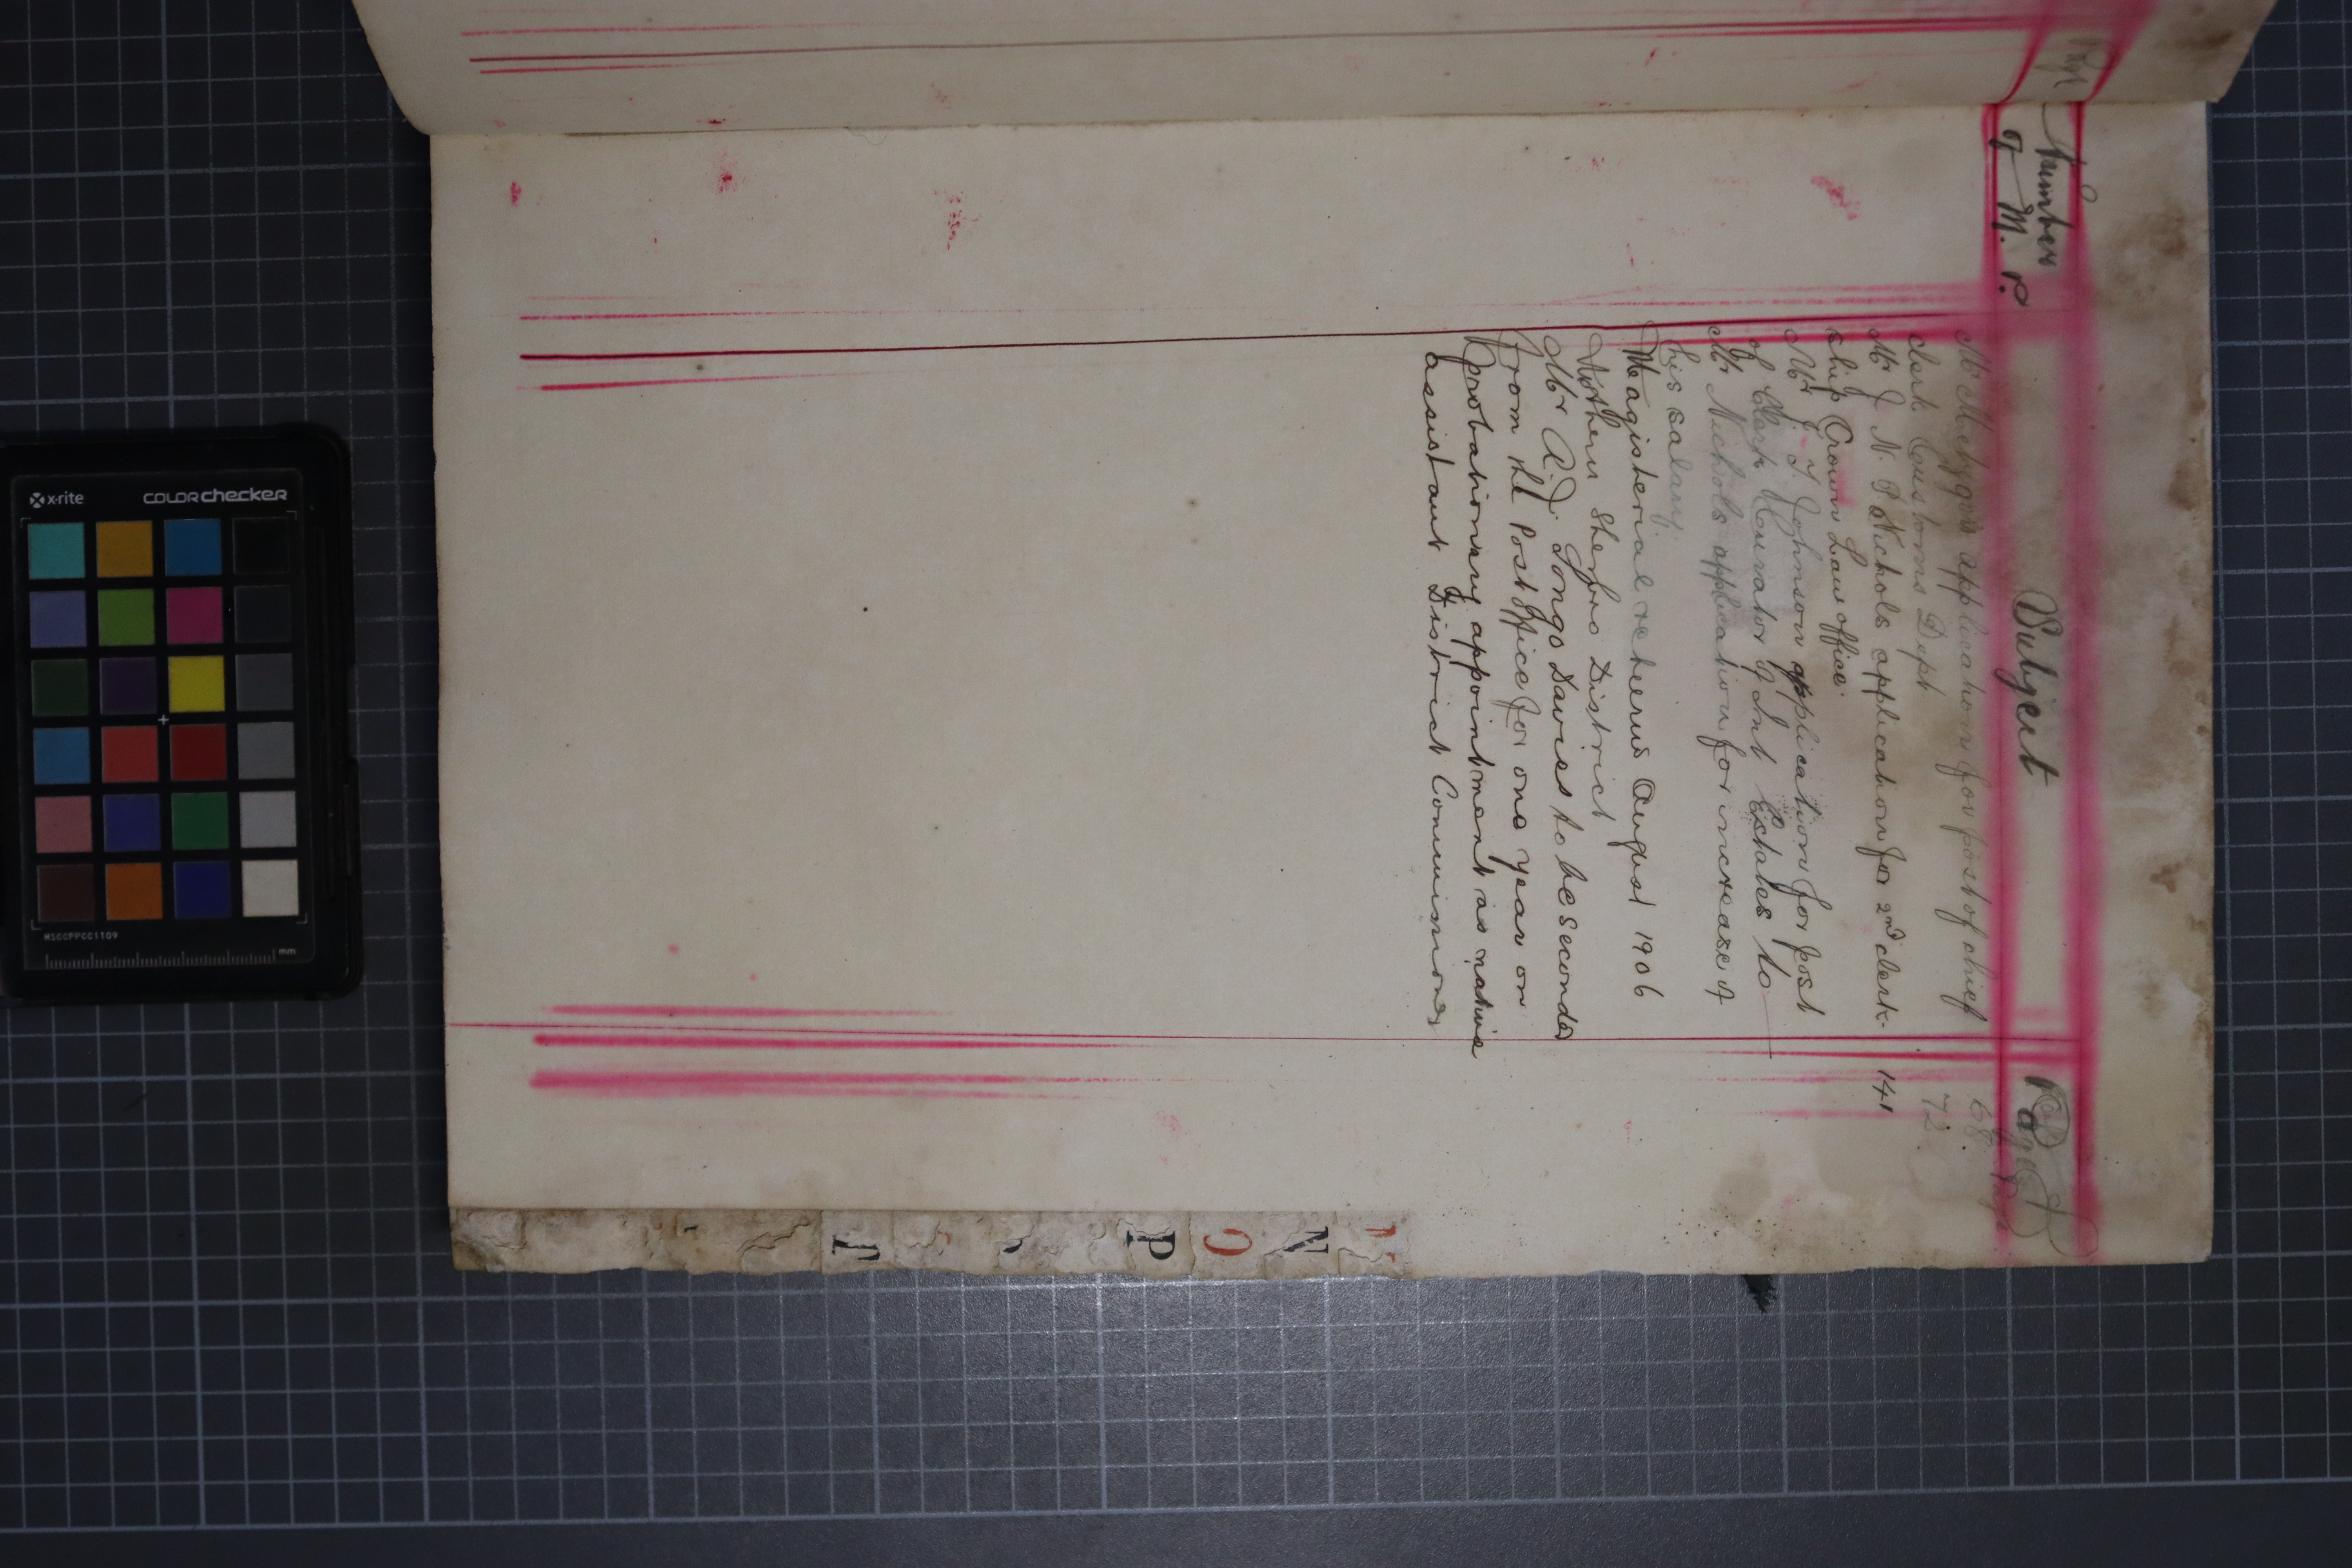 Numbers of M. P.
Subject
Pages
Mr Metzger's application for post of chief
clerk Customs Dept
68.
72.
Mr J. N. P. Nichols application for 2nd clerk-
ship Crown Law office.
141
Mr J. T. Johnson application for post
of Clerk Curator of Int Estates to
Mr Nichols application for increase of
his salary
Magisterial returns August 1906
Northern Sherbro District
Mr A. J. Tongo Davies to be seconded
from the Post Office for one year on
probationary appointment as native
assistant District Commissioner
N
O
P
T
x-rite
colorchecker
MSCCPPCC1109
mm